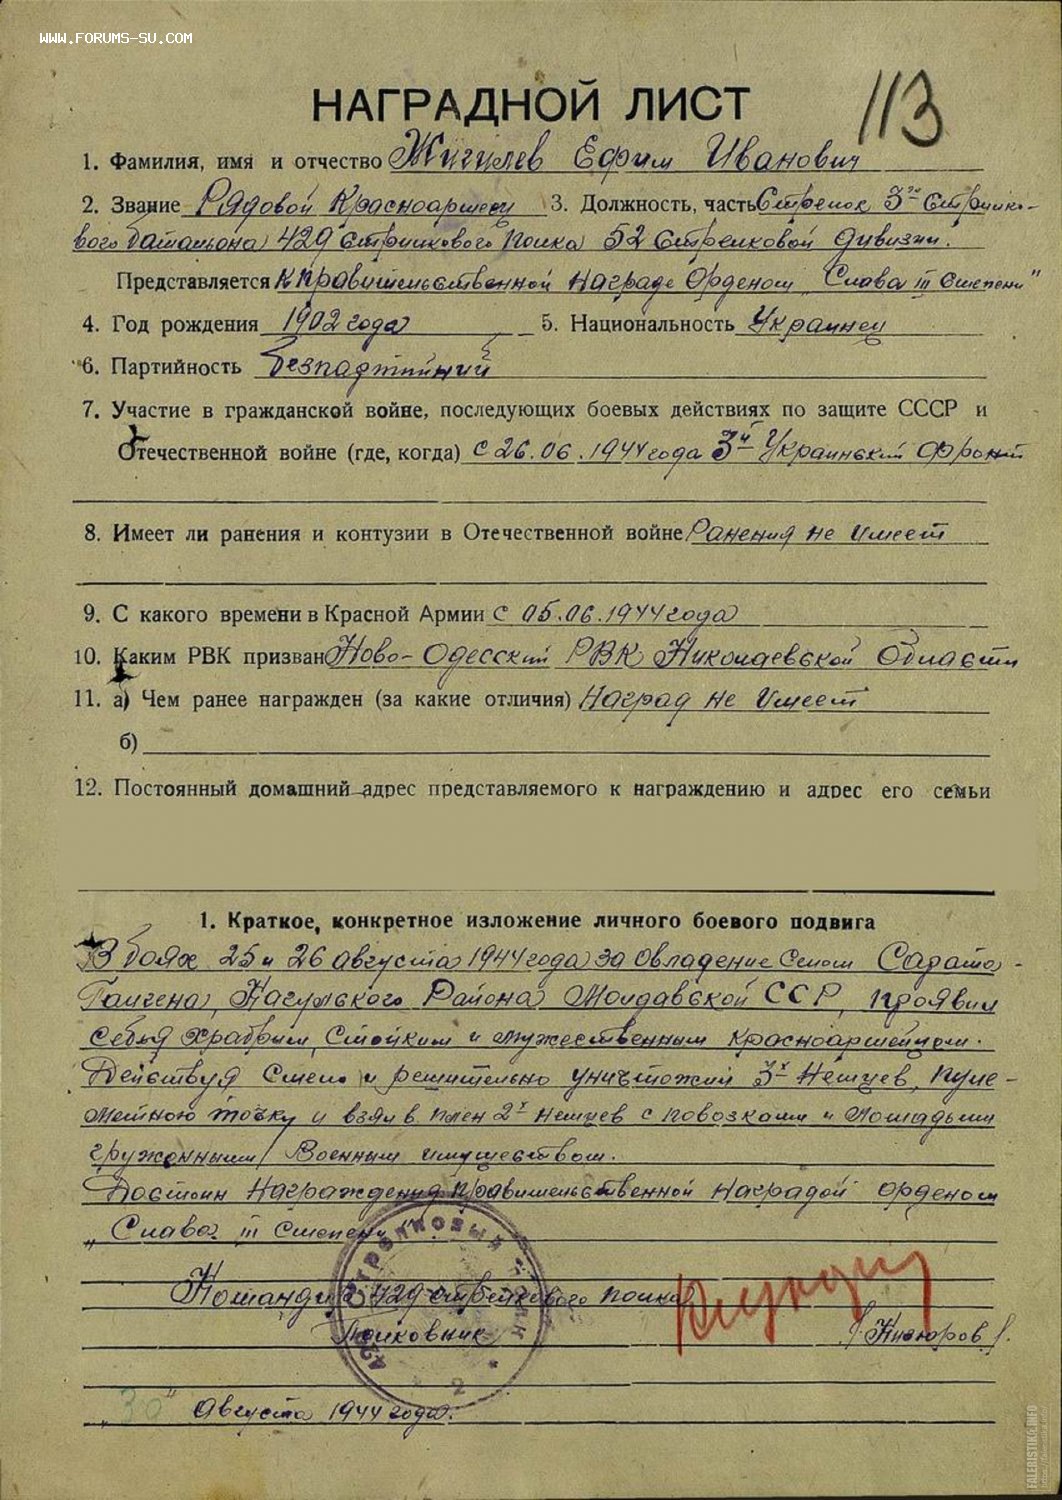 WWW.FORUMS-SU.COM
113
НАГРАДНОЙ ЛИСТ
1. Фамилия, имя и отчество Жигилев Ефим Иванович
2. Звание Рядовой Красноармеец 3. Должность, часть Стрелок 3го Стрелко-
вого батальона 429 стрелкового полка 52 Стрелковой дивизии.
Представляется к правительственной награде Орденом „Слава III степени"
4. Год рождения 1902 года 5. Национальность Украинец
6. Партийность безпартийний
7. Участие в гражданской войне, последующих боевых действиях по защите СССР и
Отечественной войне (где, когда) с 26.06.1944 года 3й Украинский фронт
8. Имеет ли ранения и контузии в Отечественной войне Ранения не имеет
9. С какого времени в Красной Армии с 05.06.1944 года
10. Каким РВК призван Ново-Одесский РВК Николаевской области
11. а) Чем ранее награжден (за какие отличия) Наград не имеет
б)
12. Постоянный домашний адрес представляемого к награждению и адрес его семьи
1. Краткое, конкретное изложение личного боевого подвига
В боях 25 и 26 августа 1944 года за овладение селом Сарата-
Галчена, Кагульского Района Молдавской ССР, проявил
себя храбрым, стойким и мужественным красноармейцем.
Действуя смело и решительно уничтожил 3х немцев, пуле-
метную точку и взял в плен 2х немцев с повозками и лошадьми
груженными Военным имуществом.
Достоин награждения правительственной наградой орденом
„Слава III степени".
Командир 429 стрелкового полка
Полковник
„30" Августа 1944 года.
СТРЕЛКОВЫЙ ПОЛК 429 * 2 *
FALERISTIKA.INFO